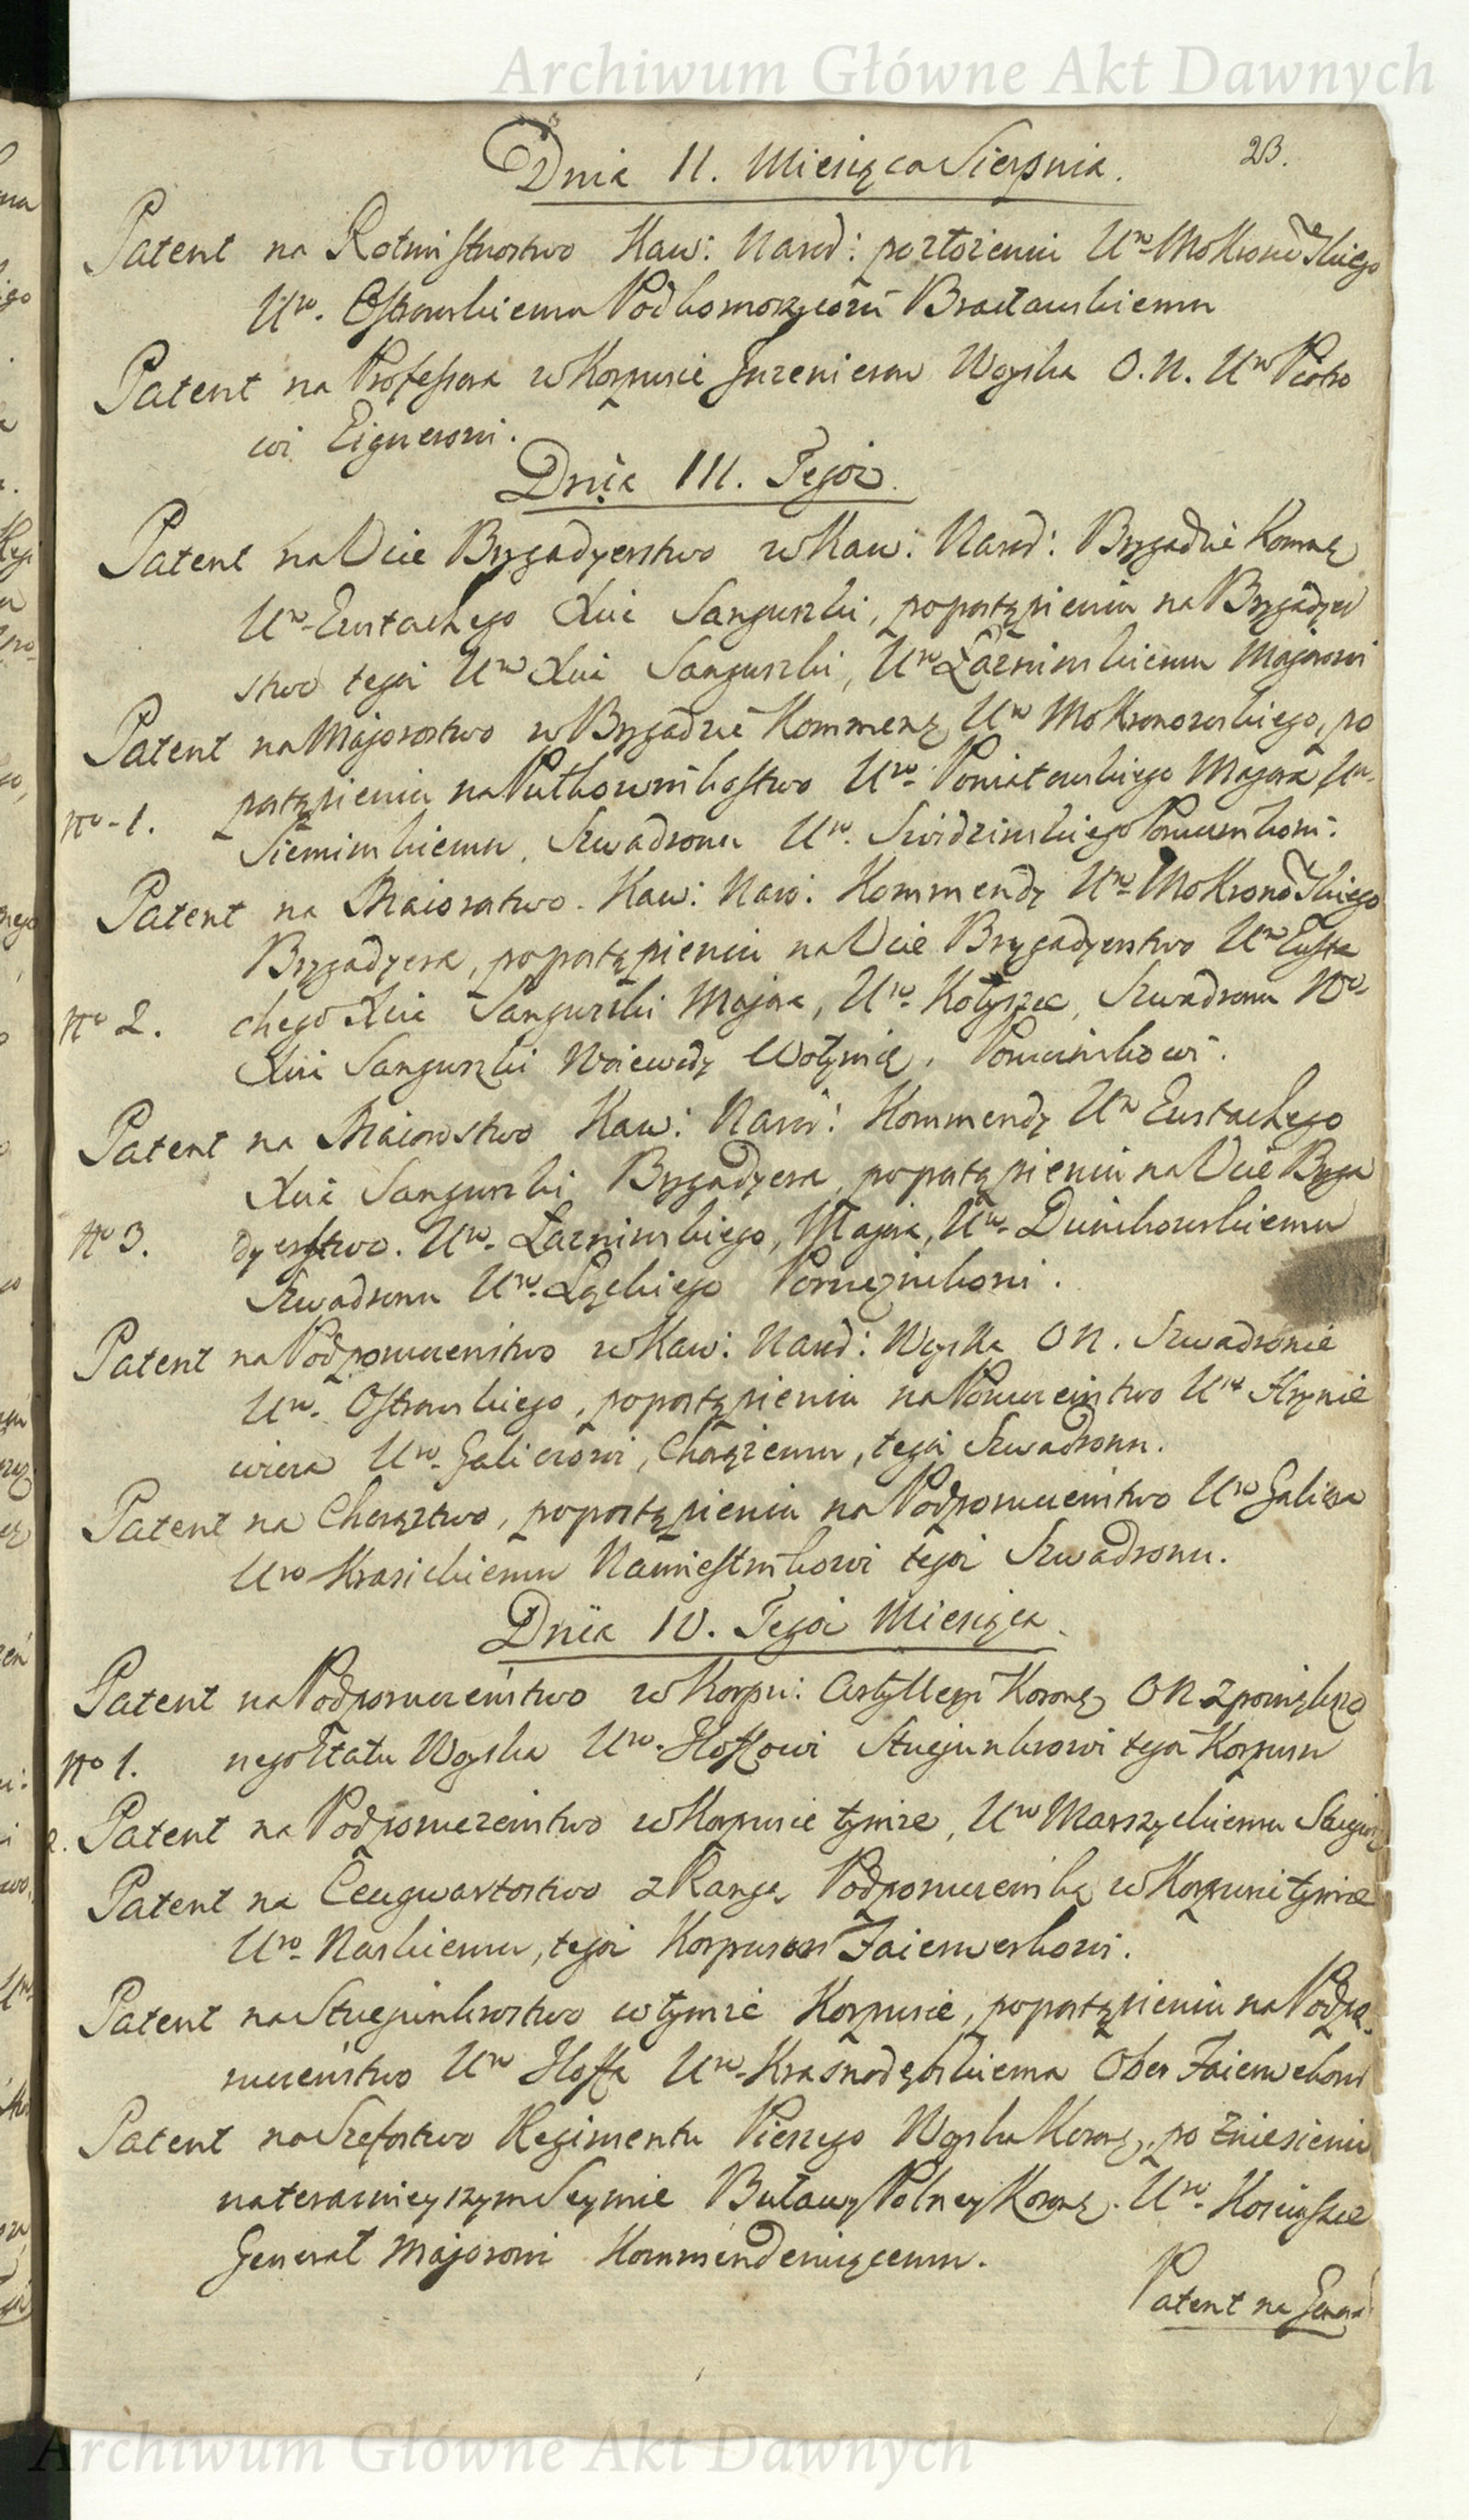 Archiwum Główne Akt Dawnych
23.
Dnia II. Miesiąca Sierpnia.
Patent na Rotmistrostwo Kaw: Narod: po złożeniu Uro Mokronoskiego
Uro. Ostrowskiemu Podkomorzemu Bracławskiemu
Patent na Professora w Korpusie Inzenierow Woyska O. N. Uro Piotro
wi
Dnia III. Tegoż.
Patent na Vice Brygadyerstwo w Kaw: Narod: Brygadzie Komdę
Uro Eustachego Xcia Sanguszki, po postąpieniu na Brygadyer
stwo tegoż Uro Xcia Sanguszki, Uro Łaźnińskiemu Majorowi
Patent na Majorostwo w Brygadzie Kommendę Uro Mokronowskiego, po
No 1. postąpieniu na Pułkownikostwo Uro Poniatowskiego Majora Uro
Siemińskiemu, Szwadronu Uro. Świdzińskiego Porucznikowi.
Patent na Maiorostwo. Kaw: Naro: Kommendy Uro Mokronoskiego
Brygadyera, po postąpieniu na Vice Brygadyerstwo Uro Eusta
No 2. chego Xcia Sanguszki Majora, Uro Kołyszce, Szwadronu Wo
Xcia Sanguszki Woiewody Wołynią. Porucznikowi.
Patent na Maiorostwo Kaw: Narod: Kommendy Uro Eustachego
Xcia Sanguszki Brygadyera, po postąpieniu na Vice Bryga
No 3. dyerstwo. Uro Łaźnińskiego, Majora, Uro Dunikowskiemu
Szwadronu Uro Porucznikowi.
Patent na Podporucenstwo w Kaw: Narod: Woyska O N. Szwadronie
Uro. Ostrowskiego, po postąpieniu na Porucenstwo Uro Hrynie
wicza Uro Galiczowi, Chorążemu, tegoż Szwadronu.
Patent na Chorąztwo, po postąpieniu na Podporucenstwo Uro Galicza
Uro Krasickiemu Namiestnikowi tegoż Szwadronu.
Dnia IV. Tegoż Miesiąca.
Patent na Podporuczeństwo w Korpu: Artylleryi Koronę O N z powiększo
No 1. nego Etatu Woyska Uro Hoffowi Stuejunkrowi tegoż Korpusu
2. Patent na Podporuczeństwo w Korpusie tymże, Uro Marszyckiemu
Patent na Ceugwartostwo z Rangą Podporucznika w Korpusie tymże
Uro Narskiemu, tegoż Korpusu Faierwerkowi.
Patent na Stuejunkrostwo w tymże Korpusie, po postąpieniu na Podpo
ruceństwo Uro Hoffa Uro Krasnodębskiemu Ober Faierwerkowi
Patent na Szefostwo Regimentu Pieszego Woyska Koronę po zniesieniu
na teraznieyszym Seymie Buławy Polney Koronę. Uro Kościuszce
Generał Majorowi Kommenderuiącemu.
Patent na General
Archiwum Główne Akt Dawnych